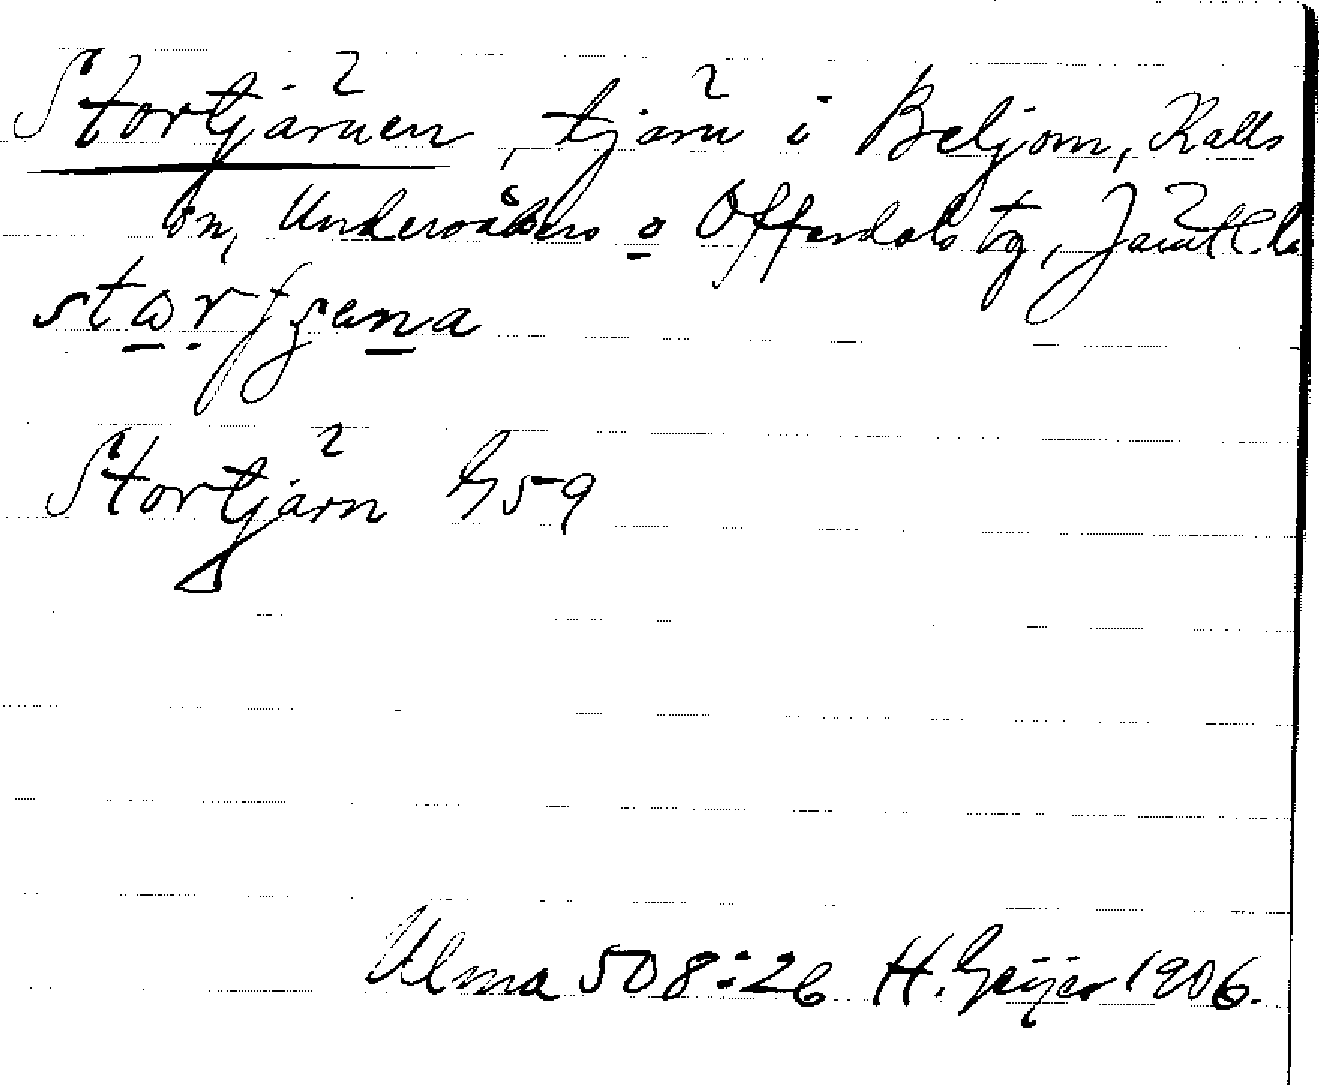 Stortjärnen, tjärn i Beljom, Kalls
sn, Undersåkers o Offerdals tg, Jämtl. la
Stortjärn G59
Ulma 508:26 H. Geijer 1906.